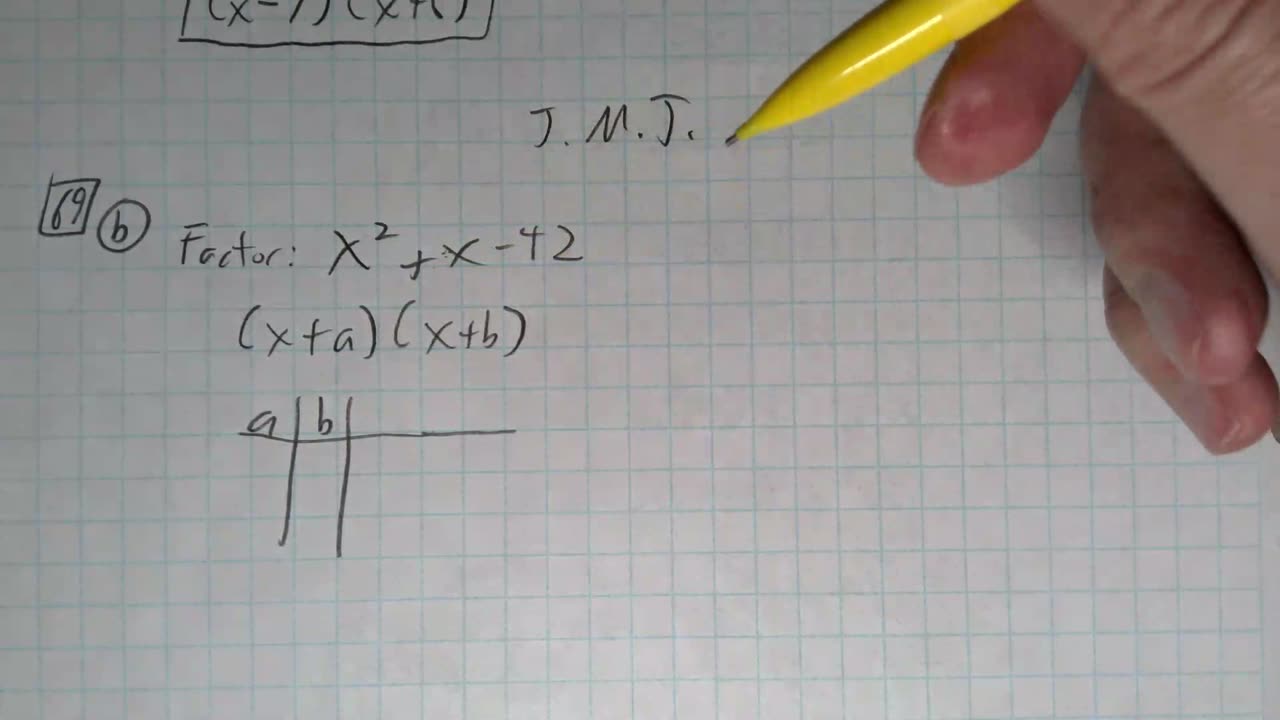 (x-7)(x+
J.M.J.
69 b Factor: x² + x - 42
(x+a)(x+b)
a b